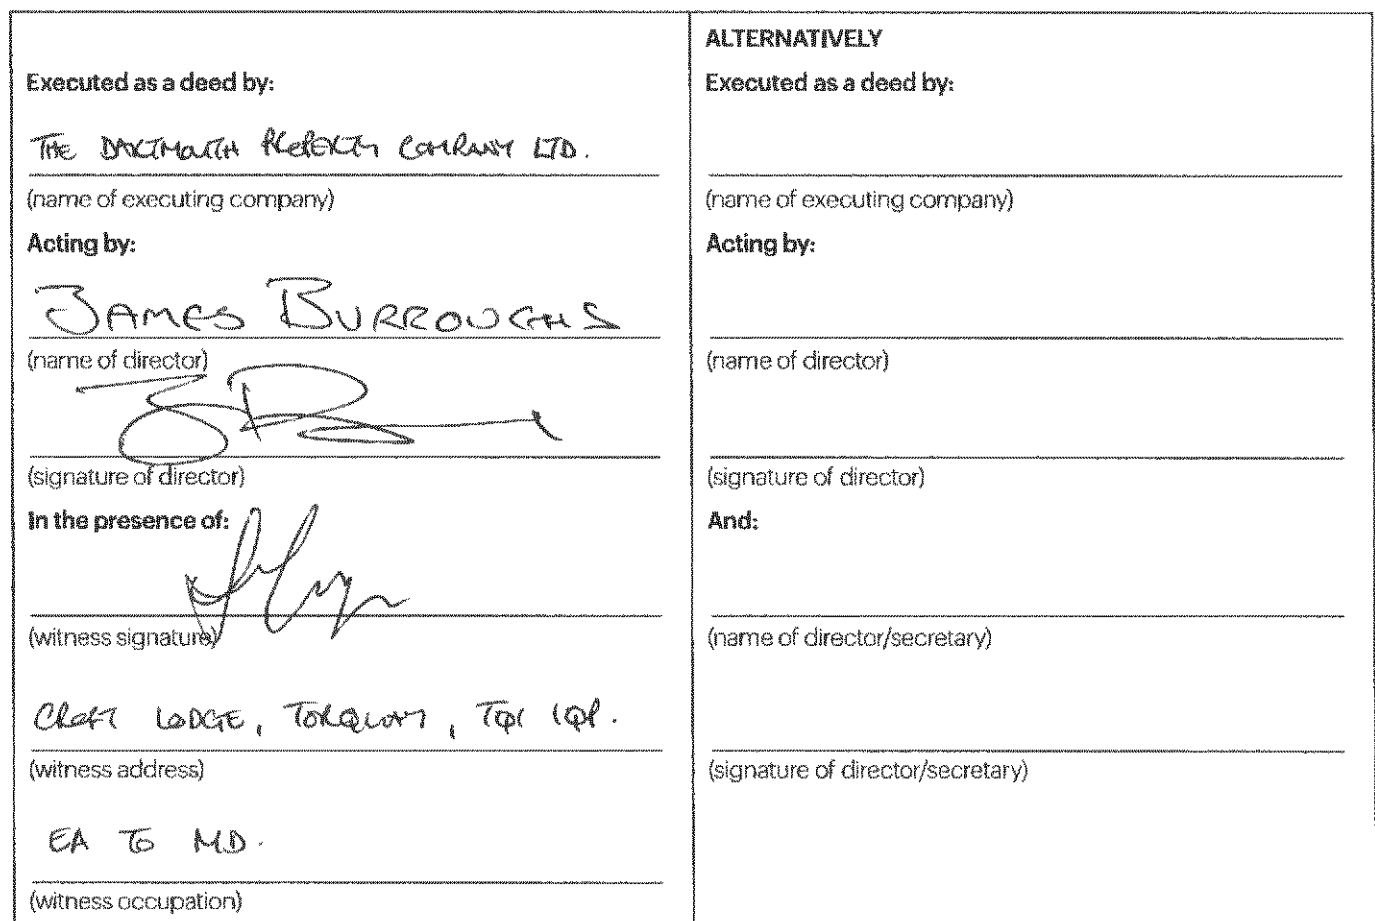 Executed as a deed by:
THE DARTMOUTH PROPERTY COMPANY LTD.
(name of executing company)
Acting by:
JAMES BURROUGHS
(name of director)
(signature of director)
In the presence of:
(witness signature)
CROFT LODGE, TORQUAY, TQ1 1QP.
(witness address)
EA TO MD.
(witness occupation)
ALTERNATIVELY
Executed as a deed by:
(name of executing company)
Acting by:
(name of director)
(signature of director)
And:
(name of director/secretary)
(signature of director/secretary)